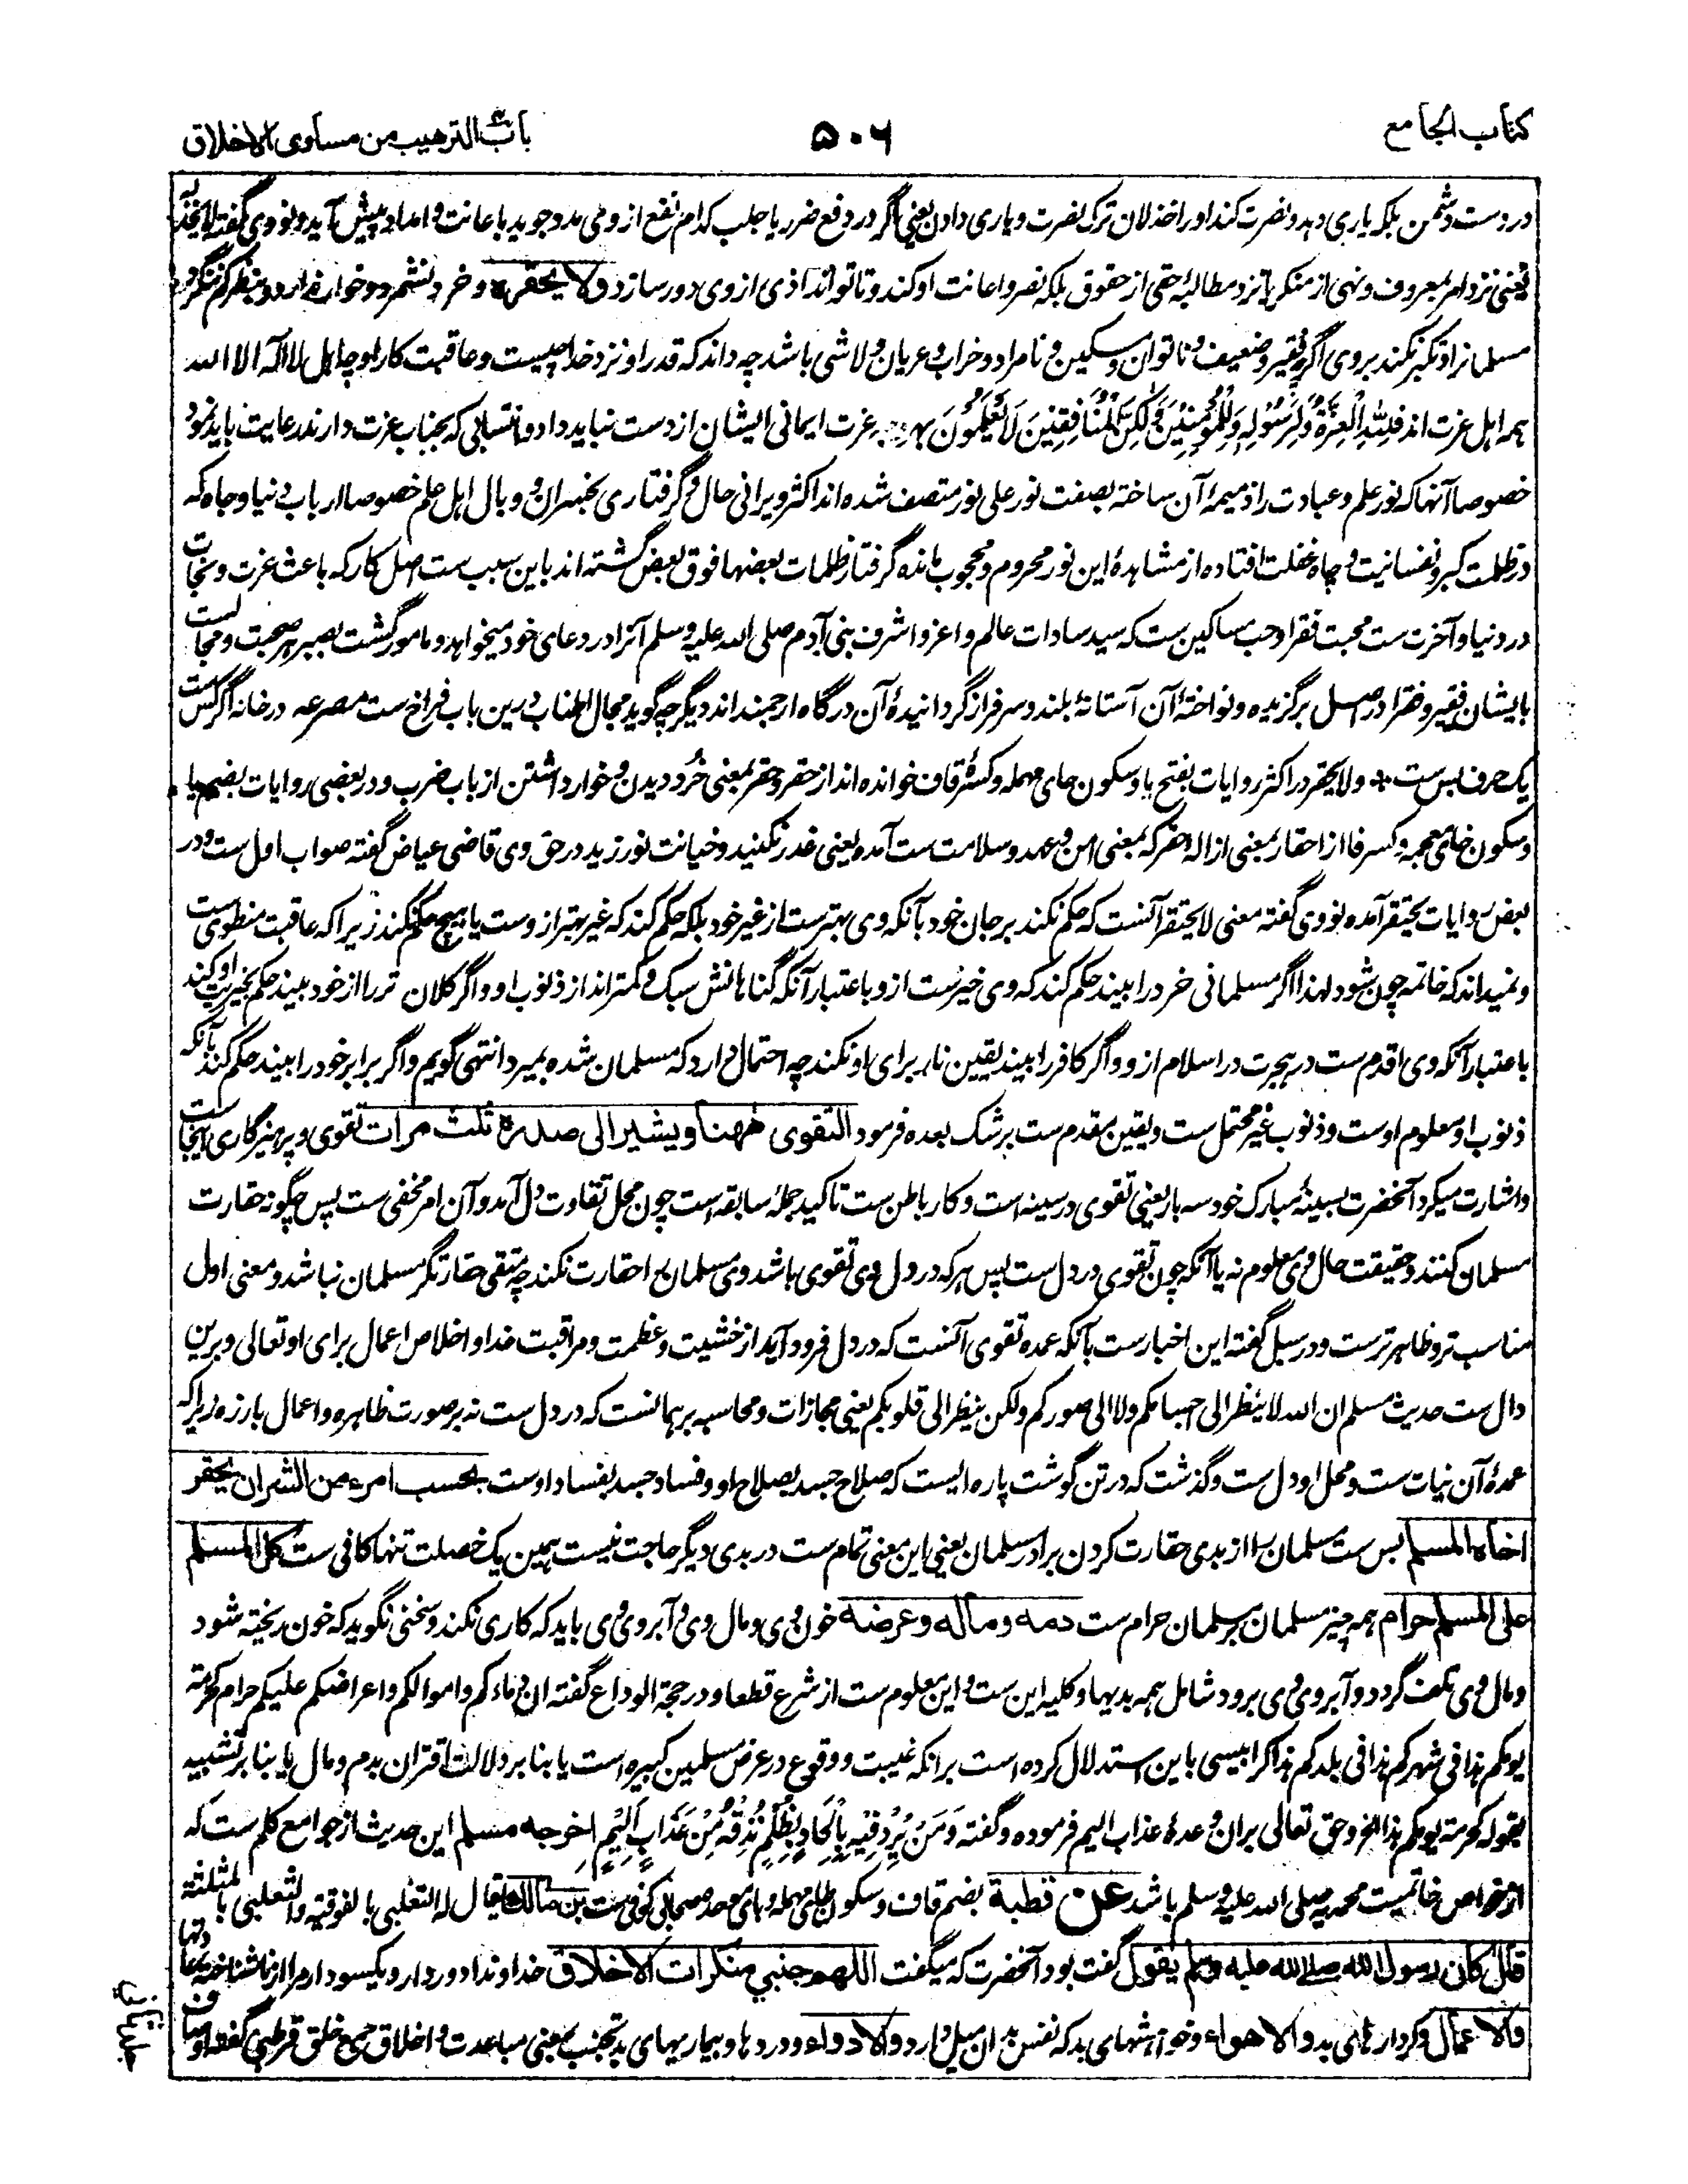 کتاب الجامع
۵۰۶
باب الترهیب من مساوی الاخلاق
در دست دشمن بلکه یاری دهد و نصرت کند او را خذلان ترک نصرت و یاری دادن یعنی اگر در دفع ضرر یا جلب کدام نفع از وی مدد جوید باعانت و امداد پیش آید و نووی گفته لا یخذله
یعنی نزد امر بمعروف و نهی از منکر یا نزد مطالبۀ حقی از حقوق بلکه نصر و اعانت او کند و تا تواند اذی از وی دور سازد ولا یحقره و خرد نشمرد و خوار ندارد و بنظر کم ننگرد
مسلمانرا و تکبر نکند بر وی اگرچه فقیر و ضعیف و ناتوان و مسکین و نامراد و خراب و عریان و لاشی باشد چه داند که قدر او نزد خدا چیست و عاقبت کار او چه اهل لا اله الا الله
همه اهل عزت اند فَلِلّٰهِ الْعِزَّةُ وَلِرَسُوْلِهٖ وَلِلْمُؤْمِنِیْنَ وَلٰکِنَّ الْمُنَافِقِیْنَ لَا یَعْلَمُوْنَ عزت ایمانی ایشان از دست نباید داد و انتسابی که بجناب عزت دارند رعایت باید نمود
خصوصا آنها که نور علم و عبادت را ضمیمۀ آن ساخته بصفت نور علی نور متصف شده اند اکثر ویرانی حال و گرفتاری بخسران و وبال اهل علم خصوصا ارباب دنیا و جاه که
در ظلمت کبر و نفسانیت و چاه غفلت افتاده از مشاهدۀ این نور محروم و محجوب مانده گرفتار ظلمات بعضها فوق بعض گشته اند باین سبب ست اصل کار که باعث عزت و نجات
در دنیا و آخرت ست محبت فقرا و حب مساکین ست که سید سادات عالم و اعز و اشرف بنی آدم صلی الله علیه وسلم آنرا در دعای خود میخواهد و مامور گشت بصبر بر صحبت و مجالست
بایشان فقیر و فقرا در اصل برگزیده و نواختۀ آن آستانۀ بلند و سرفراز گردانیدۀ آن درگاه ارجمند اند دیگر چه گوید مجال اطناب درین باب فراخ ست مصرعه در خانه اگر کس ست
یک حرف بس ست * ولا یحقر در اکثر روایات بفتح یا و سکون حای مهمله و کسرۀ قاف خوانده اند از حقر و حقر بمعنی خرد دیدن و خوار داشتن از باب ضرب و در بعضی روایات بضم یا
و سکون خای معجمه و کسر فا از اخفار بمعنی ازالۀ خفر که بمعنی امن و عهد و سلامت ست آمده یعنی غدر نکنید و خیانت نورزید در حق وی قاضی عیاض گفته صواب اول ست و در
بعض روایات یحتقر آمده نووی گفته معنی لا یحتقر آنست که حکم نکند بر جان خود بآنکه وی بهترست از غیر خود بلکه حکم کند که غیر بهتر از وست یا هیچ حکم نکند زیرا که عاقبت منطوی ست
و نمیداند که خاتمه چون شود لهذا اگر مسلمانی خرد را بیند حکم کند که وی خیرست ازو باعتبار آنکه گناهانش سبک و کمتر اند از ذنوب او و اگر کلان تر را از خود بیند حکم بخیریت او کند
باعتبار آنکه وی اقدم ست در هجرت در اسلام ازو و اگر کافر را بیند یقین نار برای او نکند چه احتمال دارد که مسلمان شده بمیرد انتهی گویم و اگر برابر خود را بیند حکم کند بآنکه
ذنوب او معلوم اوست و ذنوب غیر محتمل ست و یقین مقدم ست بر شک بعده فرمود التقوی ههنا ویشیر الی صدره ثلث مرات تقوی و پرهیزگاری اینجا ست
و اشارت میکرد آنحضرت بسینۀ مبارک خود سه بار یعنی تقوی در سینه است و کار باطن ست تاکید جملۀ سابقه است چون محل تقاوت دل آمد و آن امر مخفی ست پس چگونه حقارت
مسلمان کنند و حقیقت حال وی معلوم نه یا آنکه چون تقوی در دل ست پس هر که در دل وی تقوی باشد وی مسلمان را حقارت نکند چه متقی حقارتگر مسلمان نباشد و معنی اول
مناسب تر و ظاهر ترست و در سبل گفته این اخبارست بآنکه عمده تقوی آنست که در دل فرود آید از خشیت و عظمت و مراقبت خدا و اخلاص اعمال برای او تعالی و برین
دال ست حدیث مسلم ان الله لا ینظر الی اجسامکم ولا الی صورکم ولکن ینظر الی قلوبکم یعنی مجازات و محاسبه بر همانست که در دل ست نه بر صورت ظاهره و اعمال بارزه زیرا که
عمدۀ آن نیات ست و محل او دل ست و گذشت که در تن گوشت پاره ایست که صلاح جسد بصلاح او و فساد جسد بفساد اوست بحسب امرء من الشر ان یحقر
اخاه المسلم بس ست مسلمان را از بدی حقارت کردن برادر مسلمان یعنی این معنی تمام ست در بدی دیگر حاجت نیست همین یک خصلت تنها کافی ست کل المسلم
علی المسلم حرام همه چیز مسلمان بر مسلمان حرام ست دمه وماله وعرضه خون وی و مال وی و آبروی وی باید که کاری نکند و سخنی نگوید که خون ریخته شود
و مال وی تلف گردد و آبروی وی برود شامل همه بدیها و کلیه این ست و این معلوم ست از شرع قطعا و در حجة الوداع گفته ان دماءکم واموالکم واعراضکم علیکم حرام کحرمة
یومکم هذا فی شهرکم هذا فی بلدکم هذا کرابیسی باین استدلال کرده است برانکه غیبت و وقوع در عرض مسلمین کبیره است یا بنا بر دلالت اقتران بدم و مال یا بنا بر تشبیه
بقوله کحرمة یومکم هذا الخ و حق تعالی بران وعدۀ عذاب الیم فرموده و گفته وَمَنْ یُرِدْ فِیْهِ بِاِلْحَادٍ بِظُلْمٍ نُذِقْهُ مِنْ عَذَابٍ اَلِیْمٍ اخرجه مسلم این حدیث از جوامع کلم ست که
از خواص خاتمیت محمدیه صلی الله علیه وسلم باشد عن قطبة بضم قاف و سکون طای مهمله و بای موحده صحابی کوفی ست بن مالك یقال له التغلبی بالفوقیه والثعلبی بالمثلثة
قال کان رسول الله صلی الله علیه وسلم یقول گفت بود آنحضرت که میگفت اللهم جنبنی منکرات الاخلاق خداوندا دور دار و یکسو دار مرا از ناشناخته
والاعمال و کردارهای بد والاهواء و خواهشهای بد که نفس بدان میل دارد والادواء و دردها و بیماریهای بد تجنب بمعنی مباعدت و اخلاق جمع خلق قرطبی گفته اوصاف